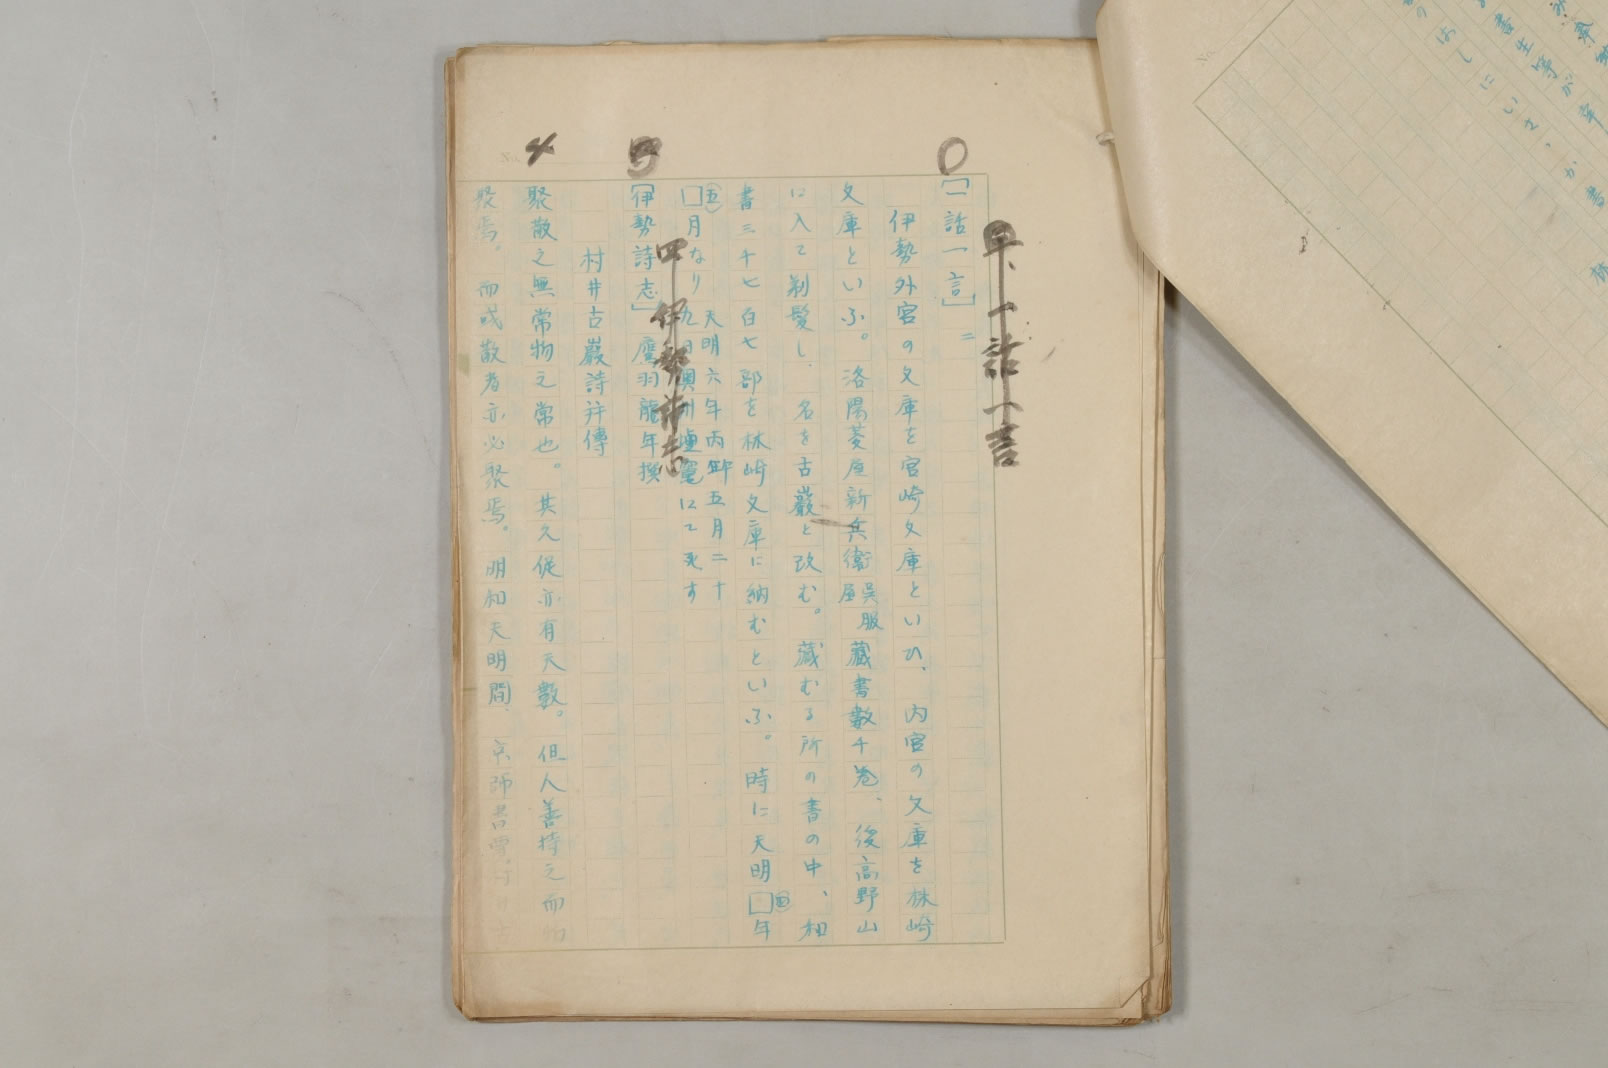 〇
早、一話一言
〔一話一言〕二
伊勢外宮の文庫を宮崎文庫といひ、内宮の文庫を林崎
文庫といふ。洛陽菱屋新兵衛呉服屋蔵書数千巻、後高野山
に入て剃髪し、名を古巖と改む。蔵むる所の書の中、和
書三千七百七部を林崎文庫に納むといふ。時に天明□年
□(五)月なり天明六年丙午五月二十九日奥州塩竃にて死す
四 伊勢詩志
〔伊勢詩志〕鷹羽龍年撰
村井古巖詩并傳
4
聚散之無常物之常也。其久促亦有天數。但人善持之而
聚焉。而或散者亦必聚焉。明和天明間、京師書賈